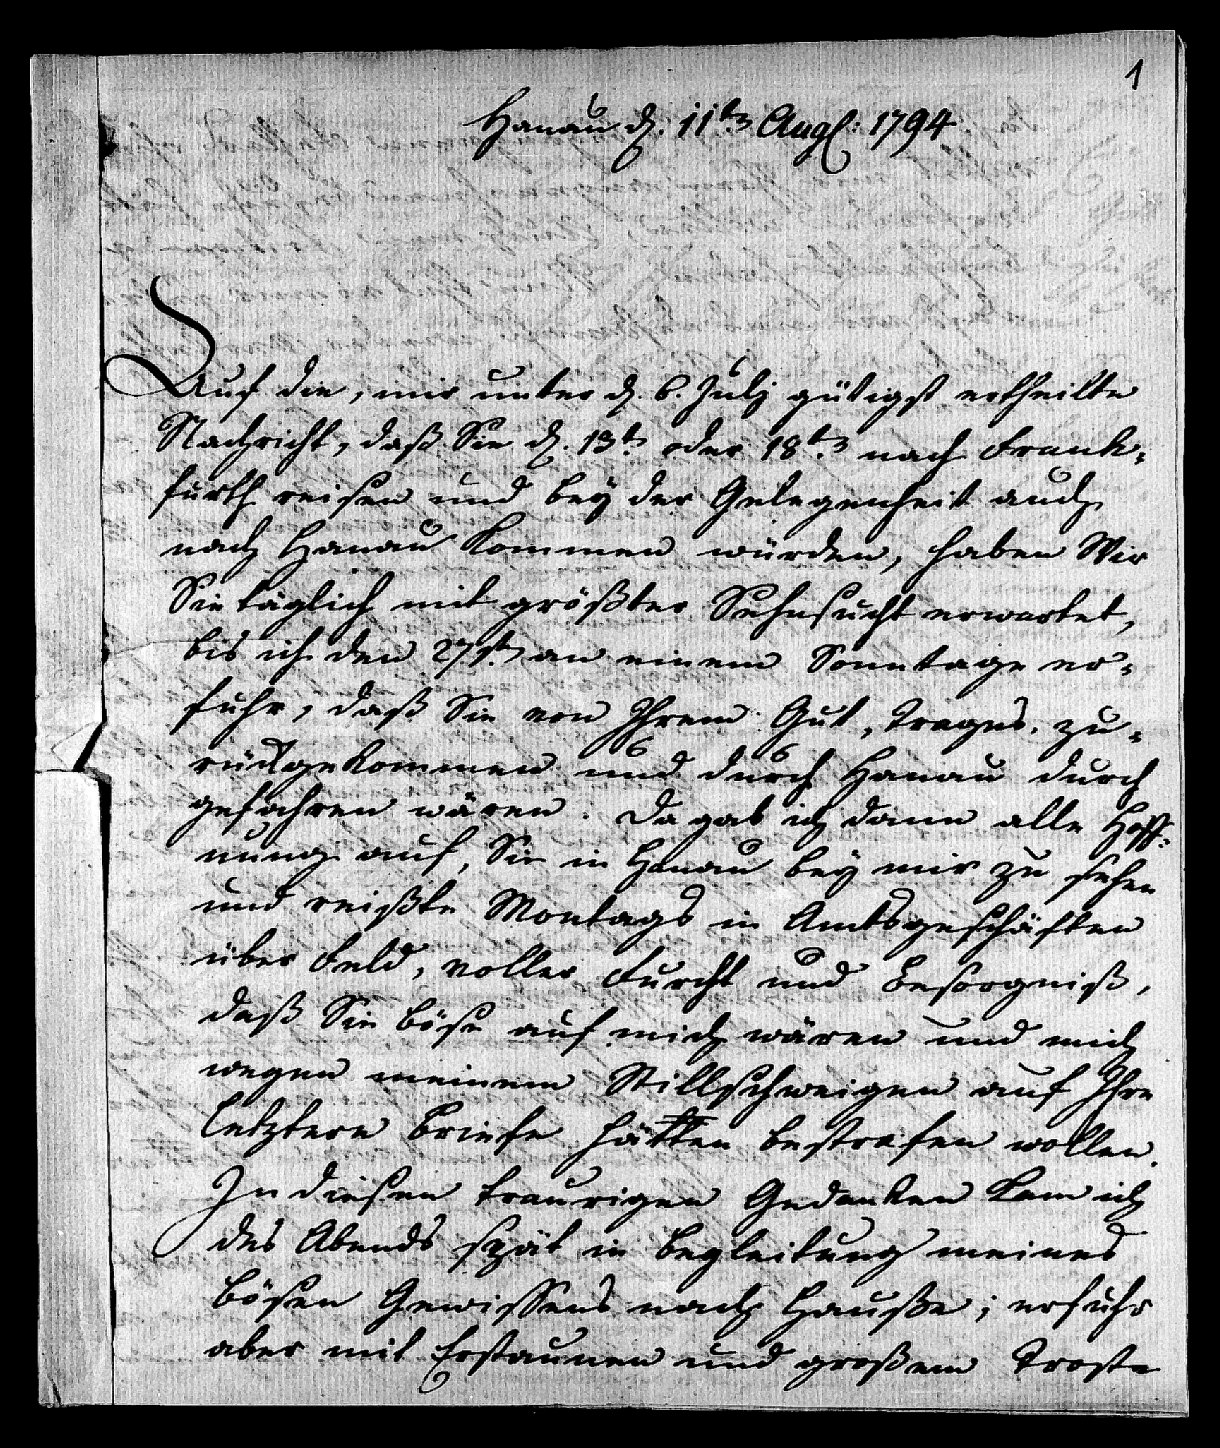 1
Hanau d. 11ten Aug: 1794
Auf die, mir unter d. 6. July gütigst ertheilte
Nachricht, daß Sie d. 13t. oder 18ten nach Frank-
furth reisen und bey der Gelegenheit auch
nach Hanau kommen würden, haben Wir
Sie täglich mit größter Sehnsucht erwartet,
bis ich den 27st. an einem Sonntage er-
fuhr, daß Sie von Ihrem Gut, Trages. zu-
rückgekommen und durch Hanau durch
gefahren wären. Da gab ich dann alle Hoff-
nung auf, Sie in Hanau bey mir zu sehen
und reißte Montags in Amtsgeschäften
über Feld, voller Furcht und Besorgniß,
daß Sie böse auf mich wären und mich
wegen meinem Stillschweigen auf Ihre
letztere Briefe hätten bestrafen wollen.
In diesen traurigen Gedanken kam ich
des Abends spät in Begleitung meines
bösen Gewissens nach Hauße; erfuhr
aber mit Erstaunen und großem Troste